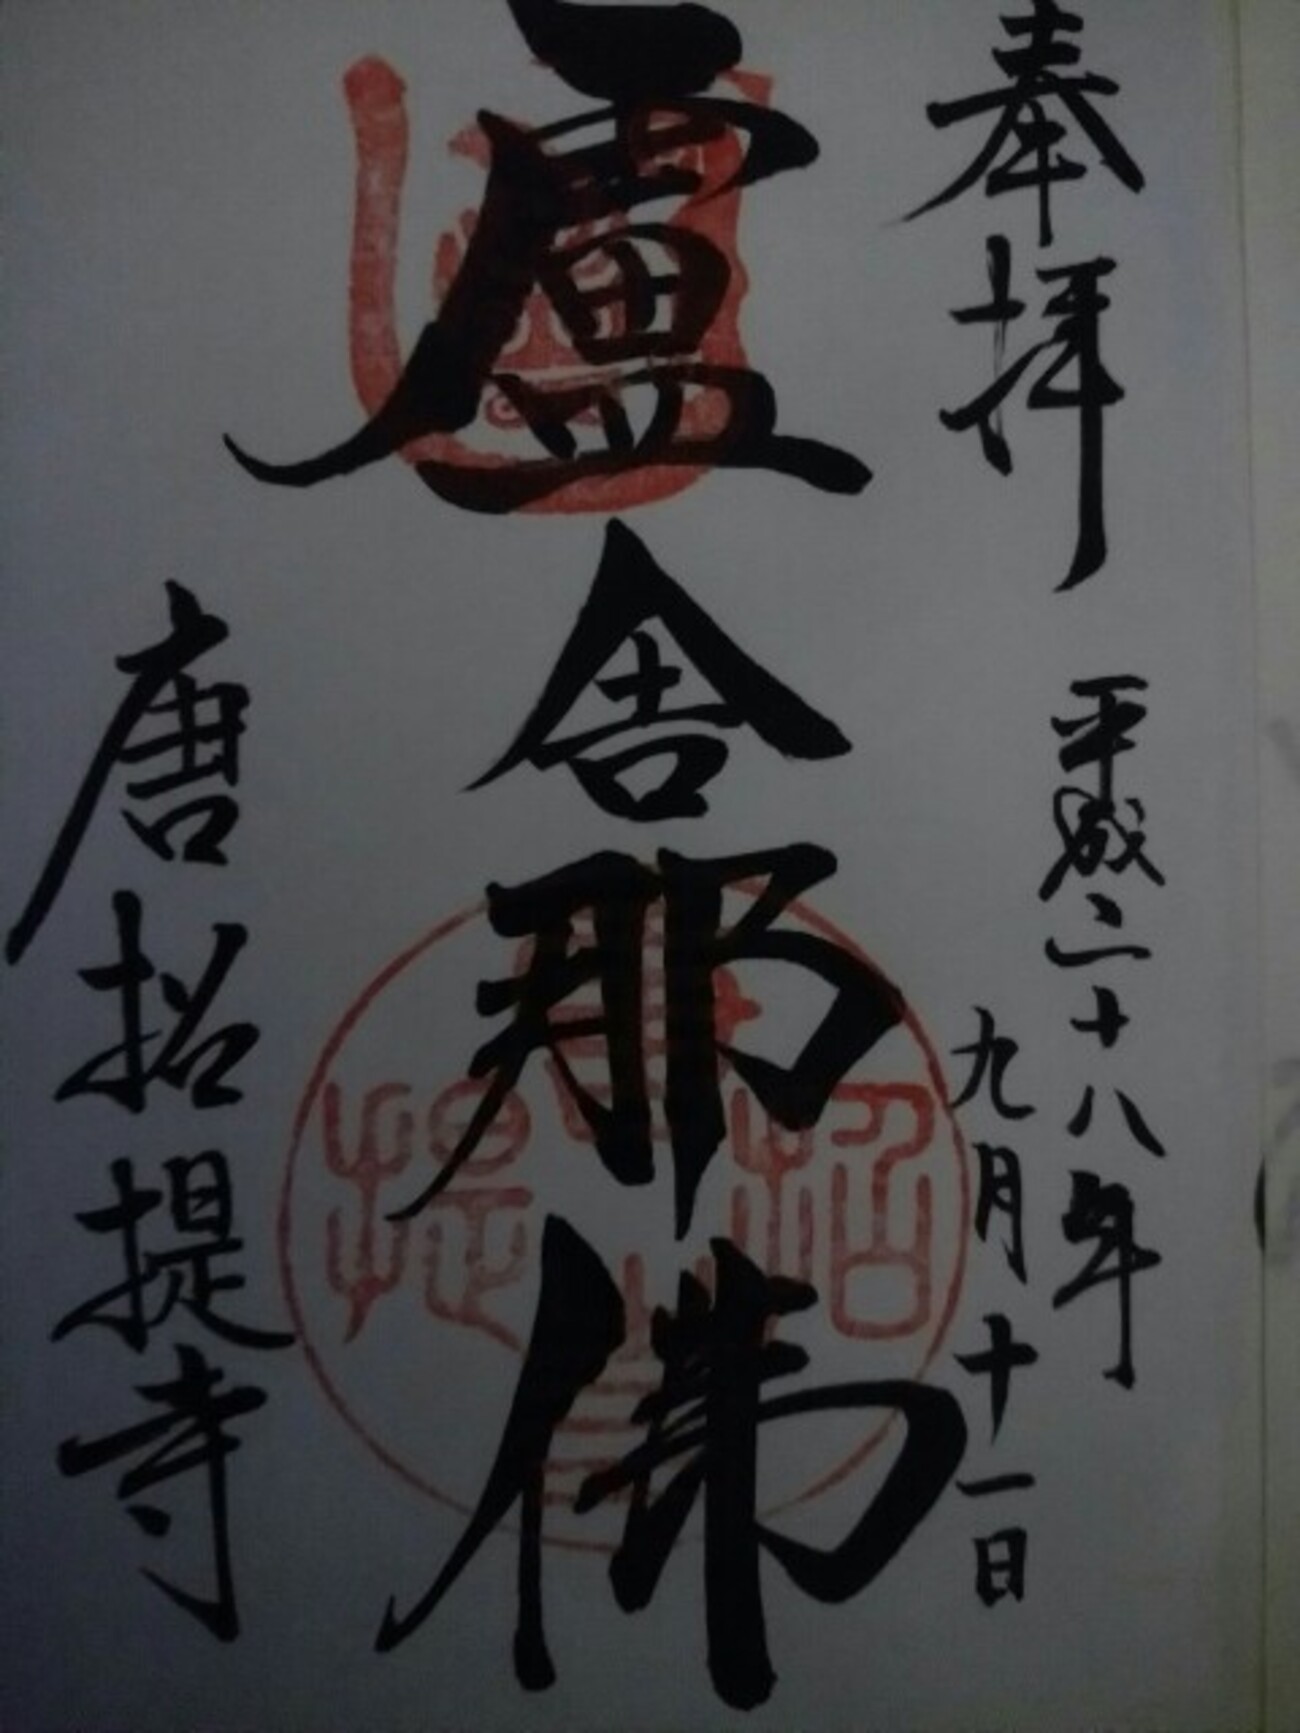 奉拝
平成二十八年
九月十一日
盧舎那佛
唐招提寺